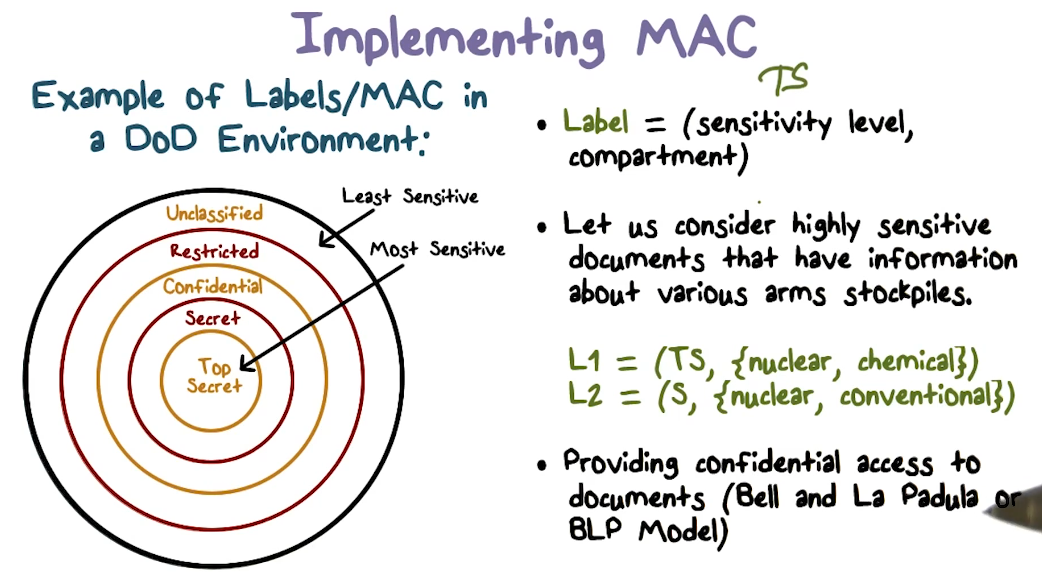 Implementing MAC
Example of Labels/MAC in
a DoD Environment:
Least Sensitive
Most Sensitive
Unclassified
Restricted
Confidential
Secret
Top
Secret
TS
• Label = (sensitivity level,
compartment)
• Let us consider highly sensitive
documents that have information
about various arms stockpiles.
L1 = (TS, {nuclear, chemical})
L2 = (S, {nuclear, conventional})
• Providing confidential access to
documents (Bell and La Padula or
BLP Model)